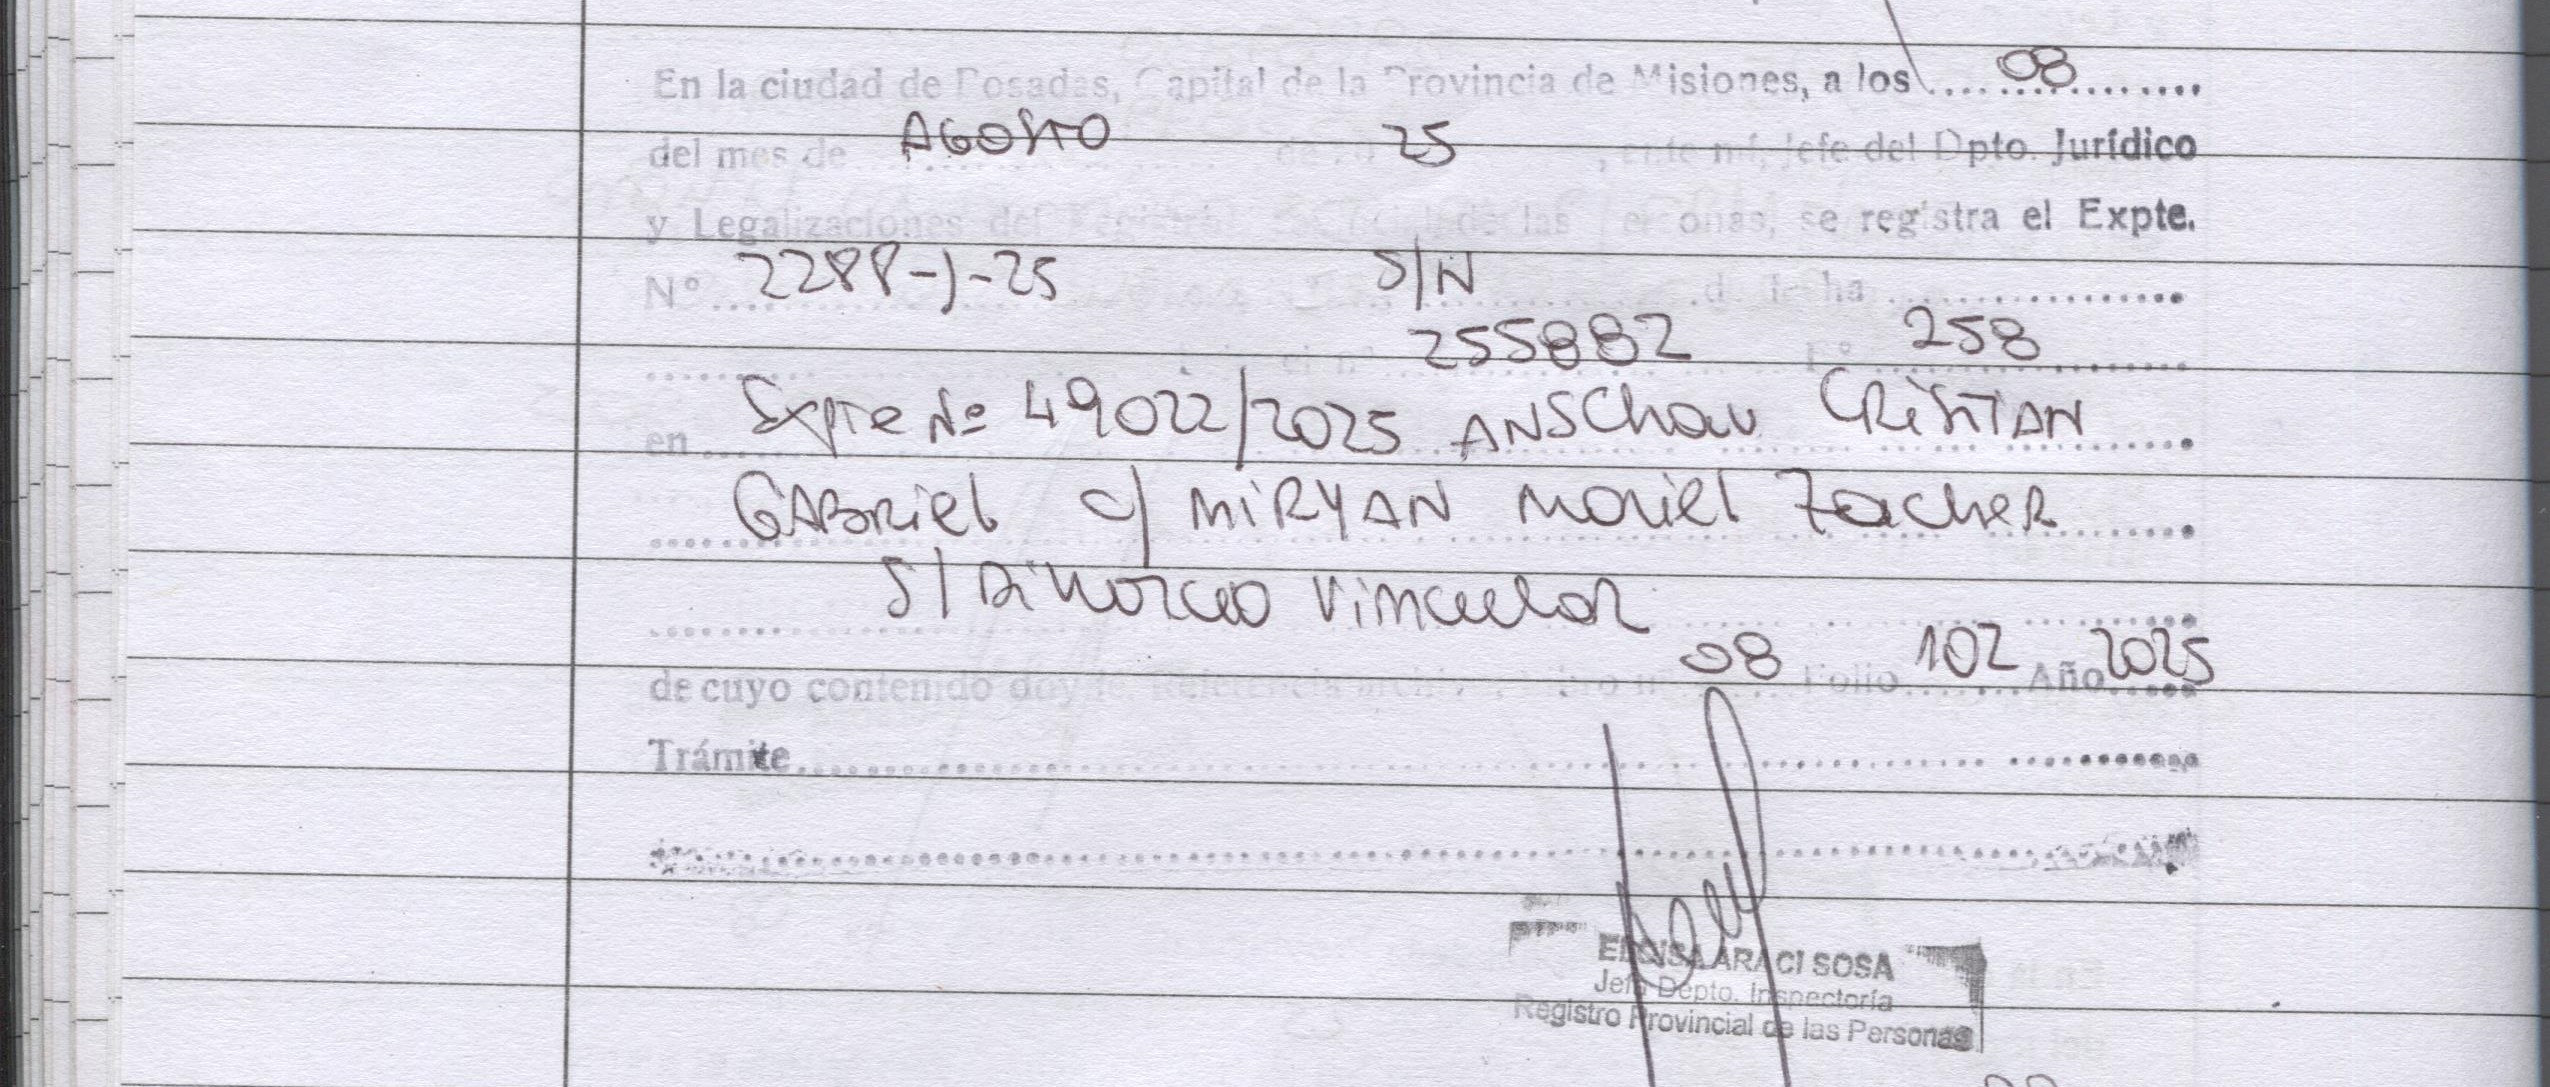 En la ciudad de Posadas, Capital de la Provincia de Misiones, a los 08
del mes de AGOSTO de 25, ante mí, Jefe del Dpto. Jurídico
y Legalizaciones del Registro de las Personas, se registra el Expte.
Nº 2288-J-25 S/N de fecha
255882 Fº 258
en Expte Nº 49022/2025 ANSChau CRISTIAN
GABRIEL c/ MIRYAN Mariel Zacher
S/ Divorcio Vincular
de cuyo contenido doy fe. Referencia archivo Libro nº 08 Folio 102 Año 2025
Trámite
ELOISA ARACI SOSA
Jefa Depto. Inspectoría
Registro Provincial de las Personas